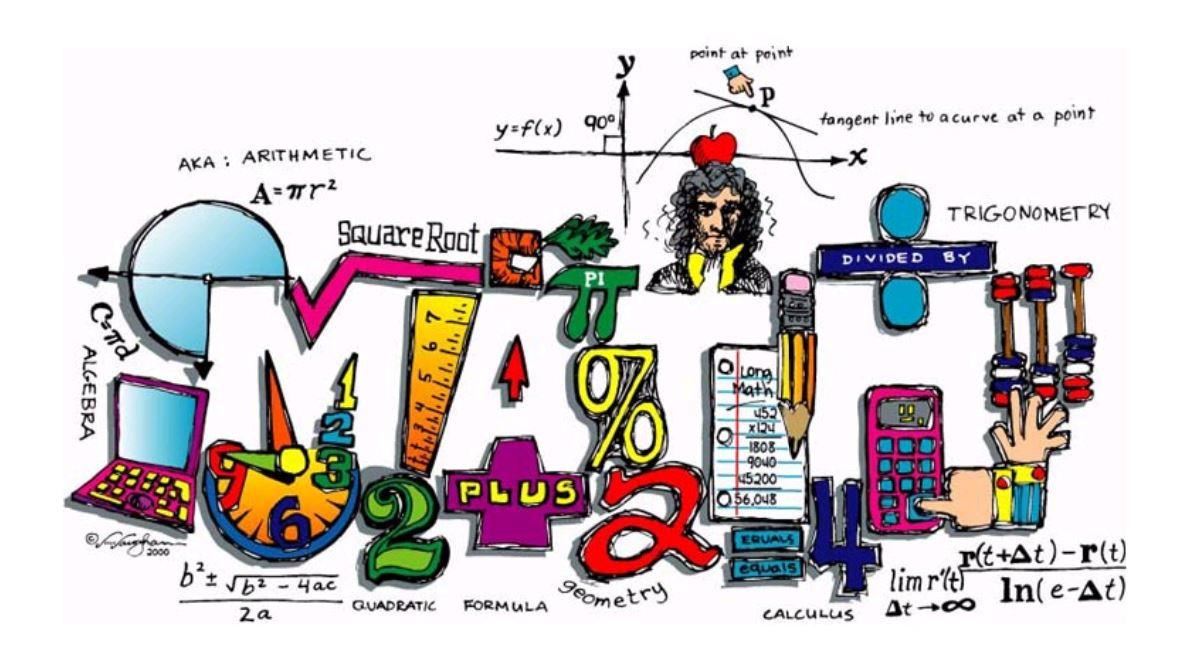 point at point
y
P
y=f(x)
90°
tangent line to a curve at a point
x
AKA: ARITHMETIC
A=πr²
Square Root
TRIGONOMETRY
PI
π
DIVIDED BY
C=πd
ALGEBRA
7
6
5
4
3
1
2
3
6
9
%
Long
Math
452
x124
1808
9040
45200
56,048
2
PLUS
2
EQUALS
equals
4
© 2000
b² ± √b² - 4ac
2a
QUADRATIC FORMULA
geometry
CALCULUS
lim r'(t) r(t+Δt) - r(t)
Δt→∞ ln(e-Δt)